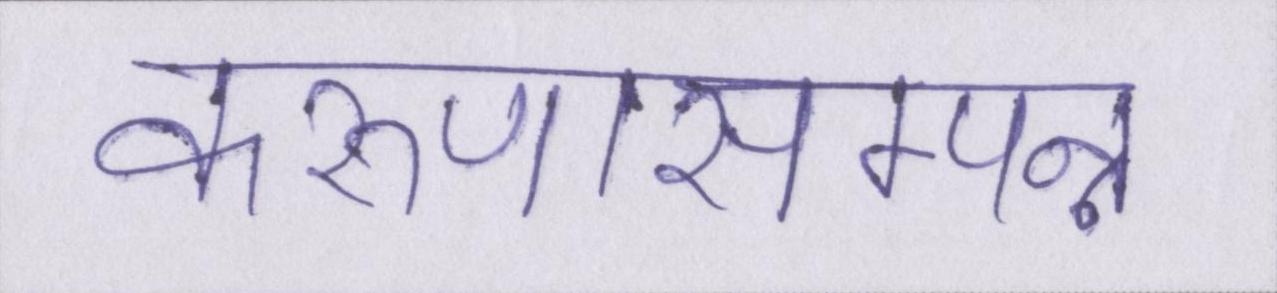 करुणासम्पन्न